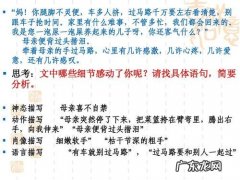 "妈！你腿脚不灵便，车多人挤，过马路千万要左右看清楚，别
跟车子抢时间。家里有什么难事，不管多忙，我们都会回来的。
我是您一泡屎一泡尿养起来的儿子呀，你还客气什么？"
母亲便背过头揩泪
牵着母亲的手过马路，心里有几许感激，几许心疼，几许爱
意，还有几许感慨。
思考：文中哪些细节感动了你呢？请找具体语句，简要
分析。
神态描写 母亲喜不自禁
动作描写 "母亲突然停了下来，把菜篮挎在臂弯里，腾出右
手，向我伸来" "母亲便背过头揩泪"
肖像描写 细嫩软手" "枯干节深的粗手"
语言描写 "有车就别过马路"，"过马路要和别人一起过"
广东龙网